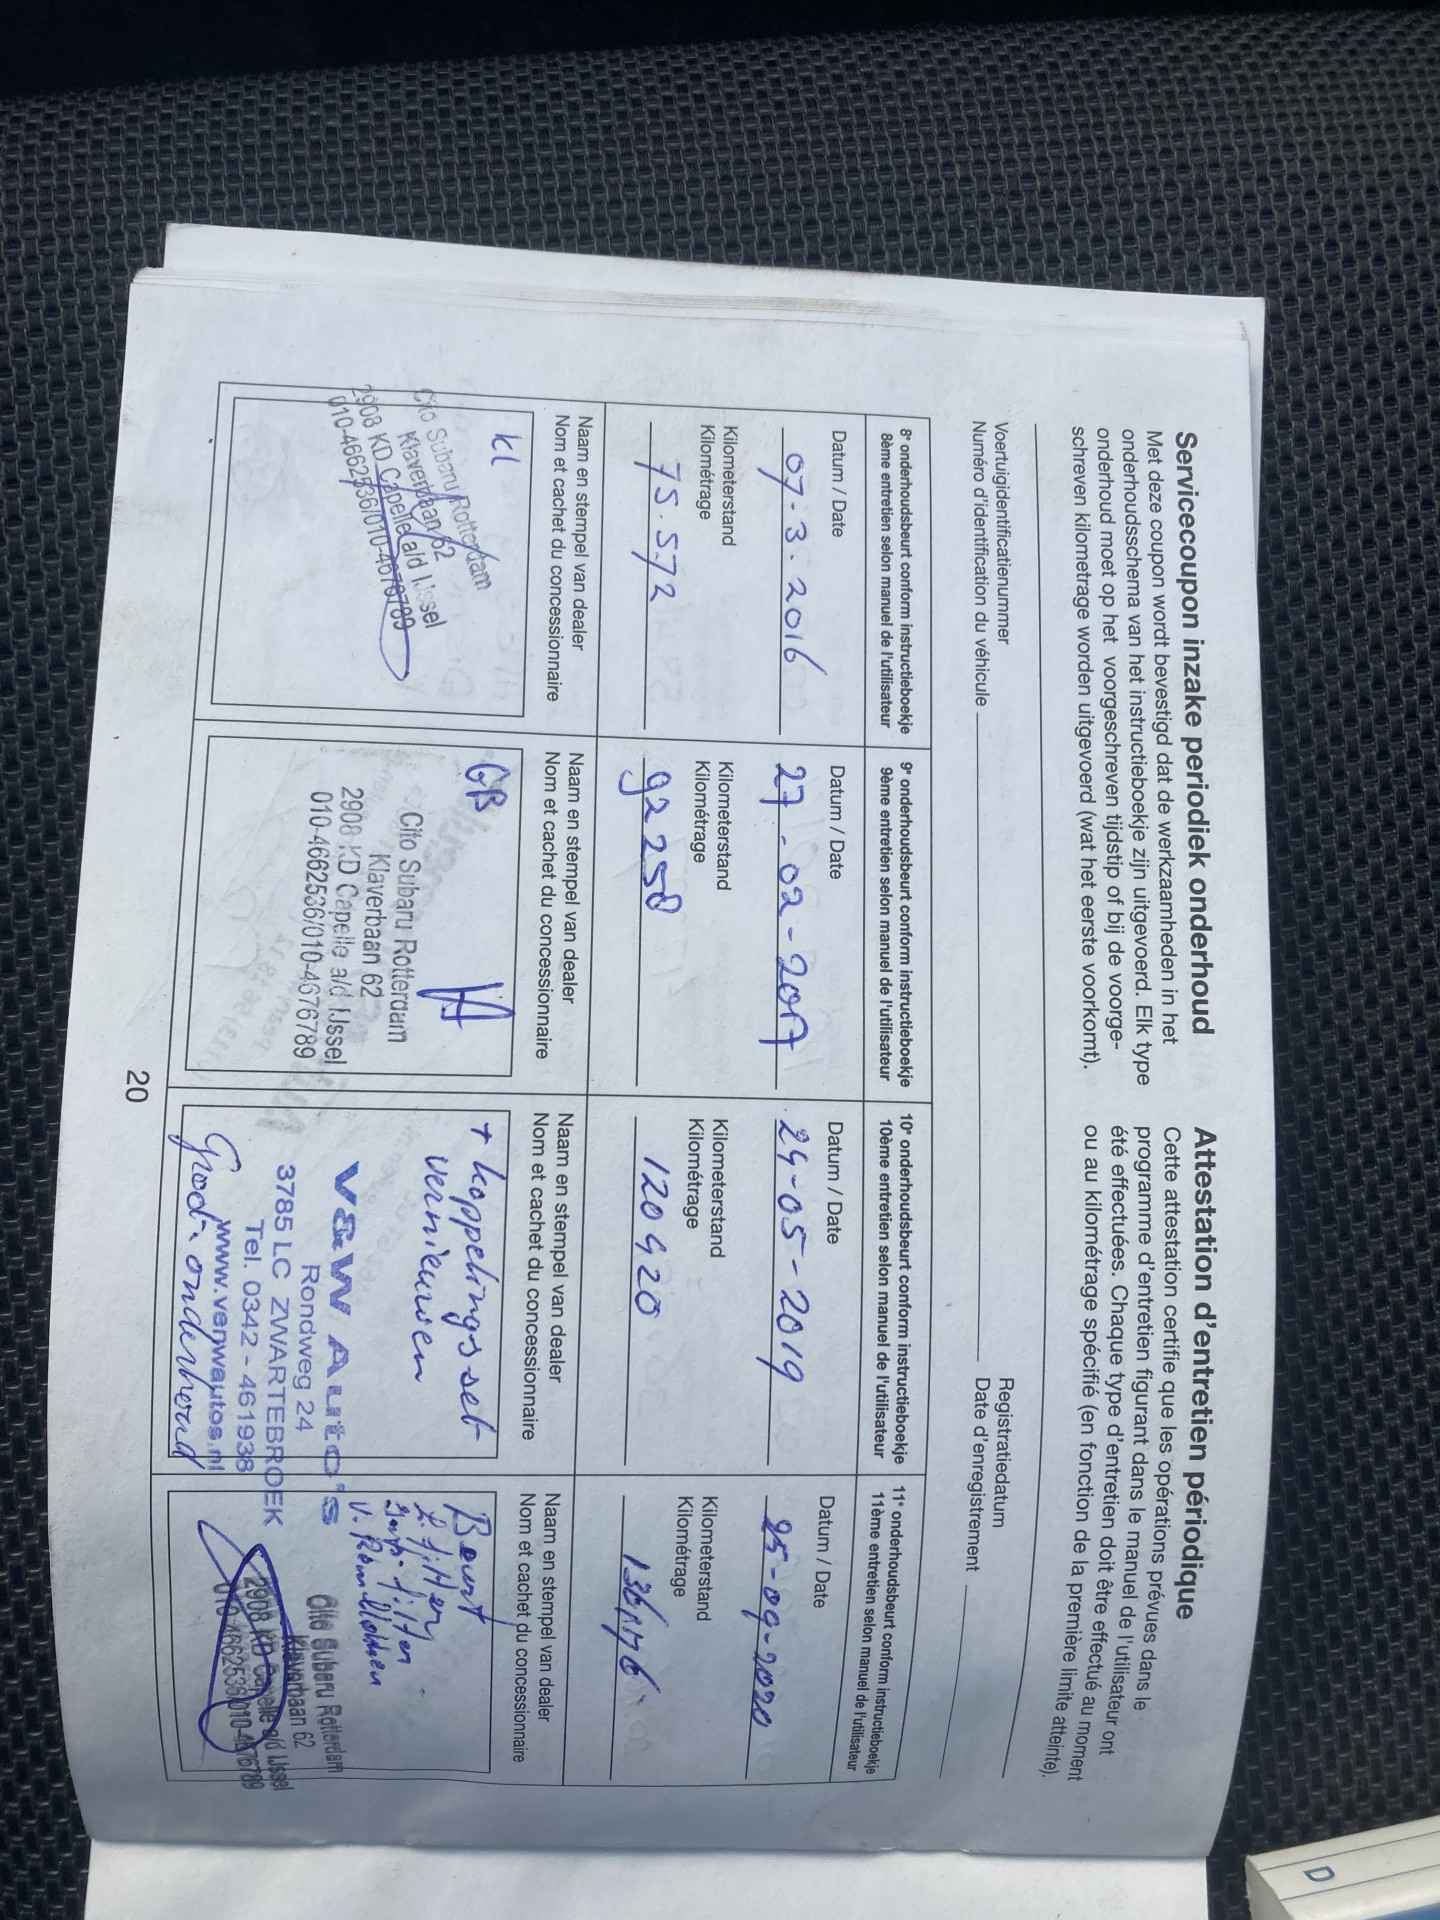 Servicecoupon inzake periodiek onderhoud
Met deze coupon wordt bevestigd dat de werkzaamheden in het
onderhoudsschema van het instructieboekje zijn uitgevoerd. Elk type
onderhoud moet op het voorgeschreven tijdstip of bij de voorge-
schreven kilometrage worden uitgevoerd (wat het eerste voorkomt).
Attestation d'entretien périodique
Cette attestation certifie que les opérations prévues dans le
programme d'entretien figurant dans le manuel de l'utilisateur ont
été effectuées. Chaque type d'entretien doit être effectué au moment
ou au kilométrage spécifié (en fonction de la première limite atteinte).
Voertuigidentificatienummer
Numéro d'identification du véhicule
Registratiedatum
Date d'enregistrement
8e onderhoudsbeurt conform instructieboekje
8ème entretien selon manuel de l'utilisateur
Datum / Date
07-3-2016
Kilometerstand
Kilométrage
75.572
Naam en stempel van dealer
Nom et cachet du concessionnaire
Kl
Cito Subaru Rotterdam
Klaverbaan 62
2908 KD Capelle a/d IJssel
010-4662536/010-4676789
9e onderhoudsbeurt conform instructieboekje
9ème entretien selon manuel de l'utilisateur
Datum / Date
27-02-2017
Kilometerstand
Kilométrage
92258
Naam en stempel van dealer
Nom et cachet du concessionnaire
GB
Cito Subaru Rotterdam
Klaverbaan 62
2908 KD Capelle a/d IJssel
010-4662536/010-4676789
10e onderhoudsbeurt conform instructieboekje
10ème entretien selon manuel de l'utilisateur
Datum / Date
24-05-2019
Kilometerstand
Kilométrage
120920
Naam en stempel van dealer
Nom et cachet du concessionnaire
+ koppelingsset
vernieuwen
V&W AUTO'S
Rondweg 24
3785 LC ZWARTEBROEK
Tel. 0342 - 461938
www.venwautos.nl
Groot onderhoud
11e onderhoudsbeurt conform instructieboekje
11ème entretien selon manuel de l'utilisateur
Datum / Date
25-09-2020
Kilometerstand
Kilométrage
136176
Naam en stempel van dealer
Nom et cachet du concessionnaire
Beurt
Cito Subaru Rotterdam
Klaverbaan 62
2908 KD Capelle a/d IJssel
010-4662536/010-4676789
20
D